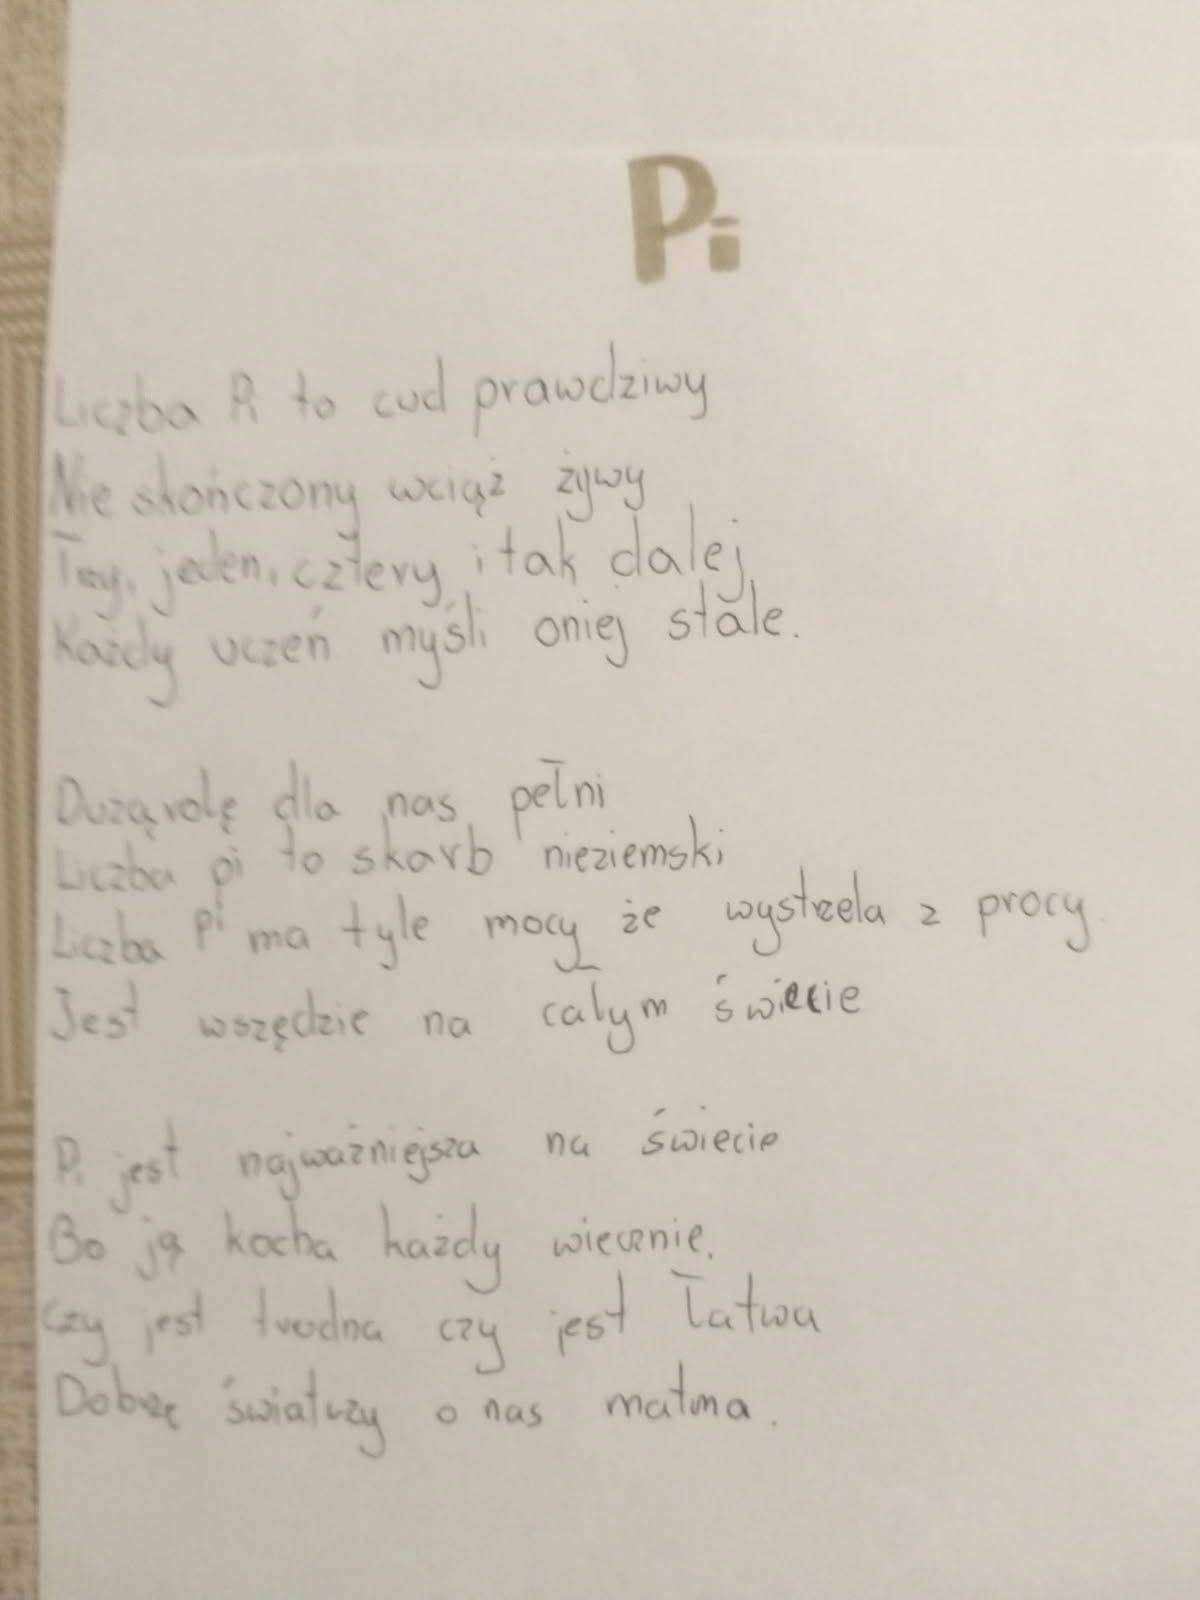 Pi
Liczba Pi to cud prawdziwy
Nie skończony wciąż żywy
Trzy, jeden, cztery i tak dalej
Każdy uczeń myśli oniej stale.
Dużą rolę dla nas pełni
Liczba pi to skarb nieziemski
Liczba pi ma tyle mocy że wystrzela z procy
Jest wszędzie na całym świecie
Pi jest najważniejsza na świecie
Bo ją kocha każdy wiecznie.
Czy jest trudna czy jest łatwa
Dobrze świadczy o nas matma.